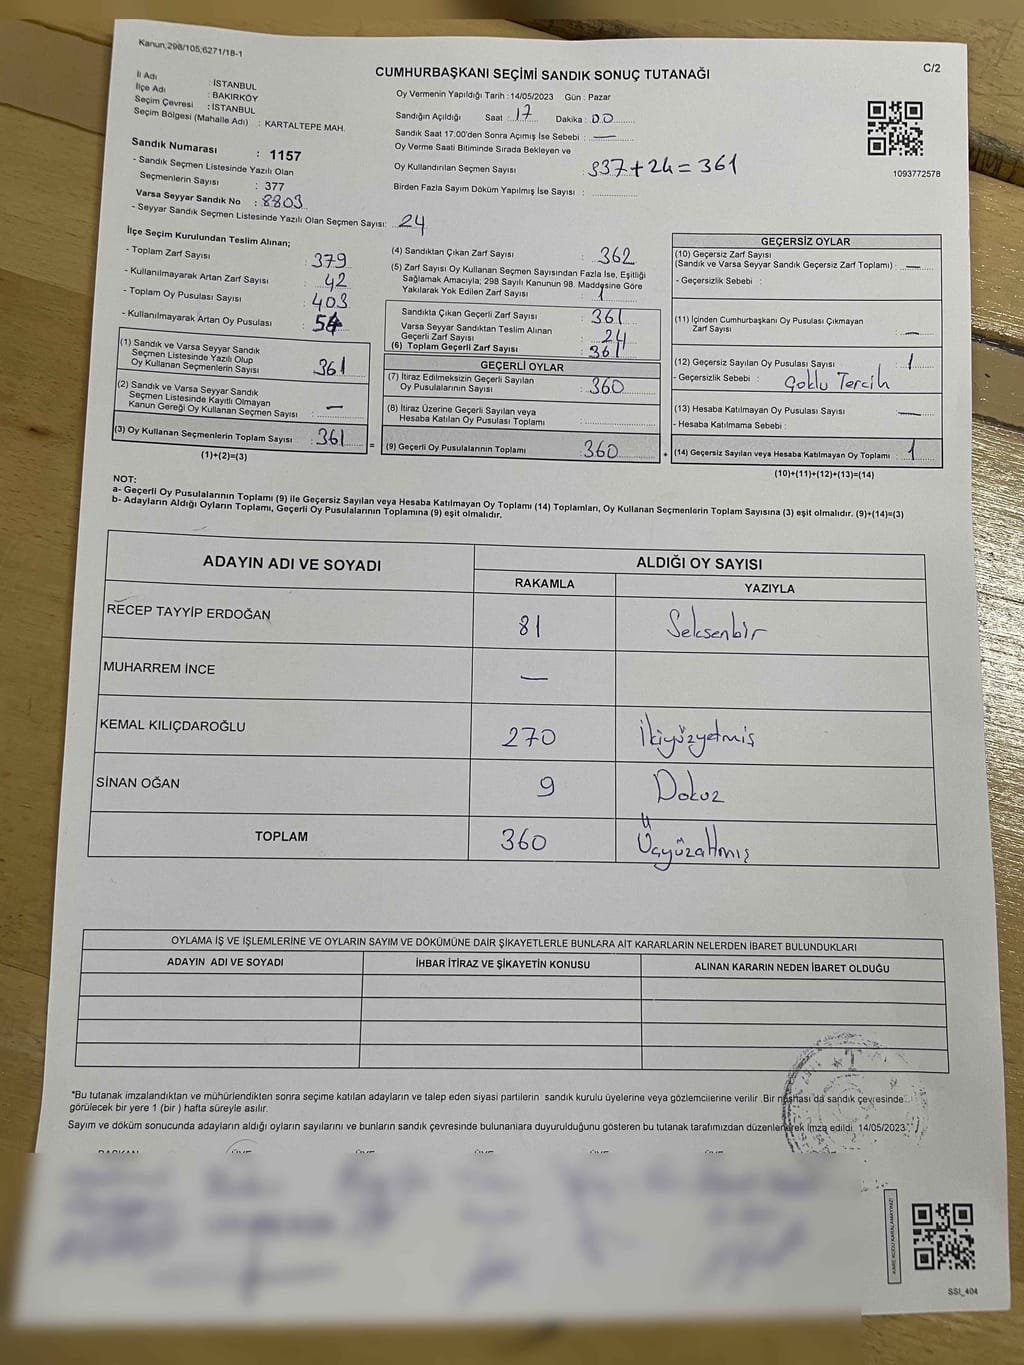 Kanun,298/105,6271/18-1
C/2
CUMHURBAŞKANI SEÇİMİ SANDIK SONUÇ TUTANAĞI
İl Adı : İSTANBUL
İlçe Adı : BAKIRKÖY
Seçim Çevresi : İSTANBUL
Seçim Bölgesi (Mahalle Adı) : KARTALTEPE MAH.
Sandık Numarası : 1157
- Sandık Seçmen Listesinde Yazılı Olan
Seçmenlerin Sayısı : 377
Varsa Seyyar Sandık No : 8803
- Seyyar Sandık Seçmen Listesinde Yazılı Olan Seçmen Sayısı: 24
Oy Vermenin Yapıldığı Tarih : 14/05/2023 Gün : Pazar
Sandığın Açıldığı Saat : 17 Dakika : 00
Sandık Saat 17:00'den Sonra Açımış İse Sebebi : —
Oy Verme Saati Bitiminde Sırada Bekleyen ve
Oy Kullandırılan Seçmen Sayısı : 337+24=361
Birden Fazla Sayım Döküm Yapılmış İse Sayısı :
1093772578
İlçe Seçim Kurulundan Teslim Alınan;
- Toplam Zarf Sayısı : 379
- Kullanılmayarak Artan Zarf Sayısı : 42
- Toplam Oy Pusulası Sayısı : 403
- Kullanılmayarak Artan Oy Pusulası :
(1) Sandık ve Varsa Seyyar Sandık
Seçmen Listesinde Yazılı Olup
Oy Kullanan Seçmenlerin Sayısı : 361
(2) Sandık ve Varsa Seyyar Sandık
Seçmen Listesinde Kayıtlı Olmayan
Kanun Gereği Oy Kullanan Seçmen Sayısı : —
(3) Oy Kullanan Seçmenlerin Toplam Sayısı : 361
(1)+(2)=(3)
=
(4) Sandıktan Çıkan Zarf Sayısı : 362
(5) Zarf Sayısı Oy Kullanan Seçmen Sayısından Fazla İse, Eşitliği
Sağlamak Amacıyla; 298 Sayılı Kanunun 98. Maddesine Göre
Yakılarak Yok Edilen Zarf Sayısı : 1
Sandıkta Çıkan Geçerli Zarf Sayısı : 361
Varsa Seyyar Sandıktan Teslim Alınan
Geçerli Zarf Sayısı : 24
(6) Toplam Geçerli Zarf Sayısı : 361
GEÇERLİ OYLAR
(7) İtiraz Edilmeksizin Geçerli Sayılan
Oy Pusulalarının Sayısı : 360
(8) İtiraz Üzerine Geçerli Sayılan veya
Hesaba Katılan Oy Pusulası Toplamı :
(9) Geçerli Oy Pusulalarının Toplamı : 360
+
GEÇERSİZ OYLAR
(10) Geçersiz Zarf Sayısı
(Sandık ve Varsa Seyyar Sandık Geçersiz Zarf Toplamı) : —
- Geçersizlik Sebebi :
(11) İçinden Cumhurbaşkanı Oy Pusulası Çıkmayan
Zarf Sayısı : —
(12) Geçersiz Sayılan Oy Pusulası Sayısı : 1
- Geçersizlik Sebebi : Çoklu Tercih
(13) Hesaba Katılmayan Oy Pusulası Sayısı : —
- Hesaba Katılmama Sebebi :
(14) Geçersiz Sayılan veya Hesaba Katılmayan Oy Toplamı : 1
(10)+(11)+(12)+(13)=(14)
NOT:
a- Geçerli Oy Pusulalarının Toplamı (9) ile Geçersiz Sayılan veya Hesaba Katılmayan Oy Toplamı (14) Toplamları, Oy Kullanan Seçmenlerin Toplam Sayısına (3) eşit olmalıdır. (9)+(14)=(3)
b- Adayların Aldığı Oyların Toplamı, Geçerli Oy Pusulalarının Toplamına (9) eşit olmalıdır.
ADAYIN ADI VE SOYADI ALDIĞI OY SAYISI
RAKAMLA YAZIYLA
RECEP TAYYİP ERDOĞAN 81 Seksenbir
MUHARREM İNCE —
KEMAL KILIÇDAROĞLU 270 İkiyüzyetmiş
SİNAN OĞAN 9 Dokuz
TOPLAM 360 Üçyüzaltmış
OYLAMA İŞ VE İŞLEMLERİNE VE OYLARIN SAYIM VE DÖKÜMÜNE DAİR ŞİKAYETLERLE BUNLARA AİT KARARLARIN NELERDEN İBARET BULUNDUKLARI
ADAYIN ADI VE SOYADI İHBAR İTİRAZ VE ŞİKAYETİN KONUSU ALINAN KARARIN NEDEN İBARET OLDUĞU
*Bu tutanak imzalandıktan ve mühürlendikten sonra seçime katılan adayların ve talep eden siyasi partilerin sandık kurulu üyelerine veya gözlemcilerine verilir .Bir nushası da sandık çevresinde
görülecek bir yere 1 (bir ) hafta süreyle asılır.
Sayım ve döküm sonucunda adayların aldığı oyların sayılarını ve bunların sandık çevresinde bulunanlara duyurulduğunu gösteren bu tutanak tarafımızdan düzenlenerek imza edildi. 14/05/2023
KARE KODU KARALAMAYINIZ!
SSI_404